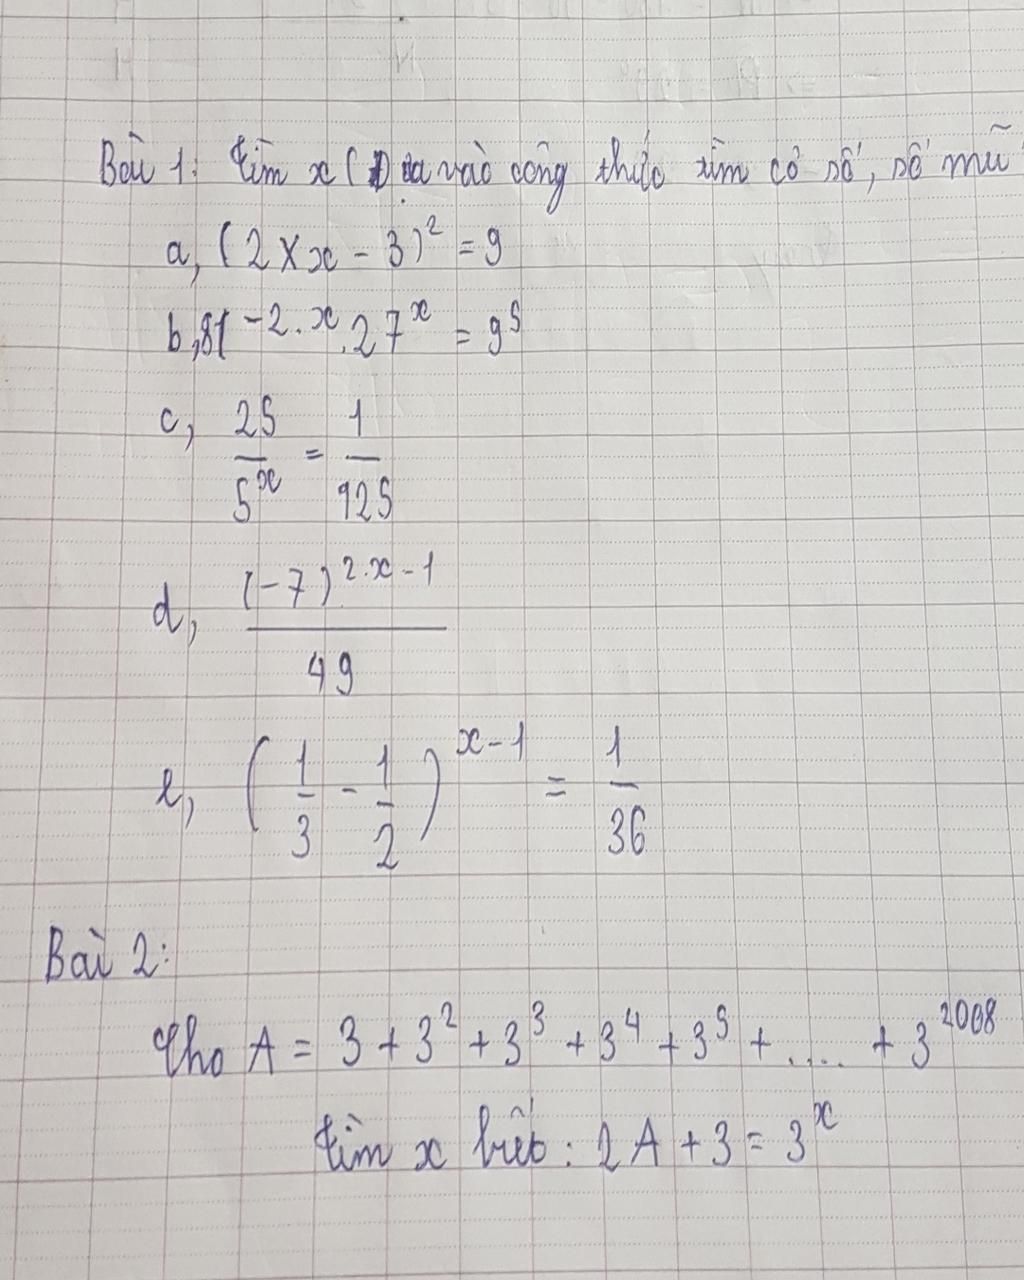 Bài 1: tìm x (Dựa vào công thức tìm cơ số, số mũ
a, (2 × x - 3)² = 9
b, 81^(-2.x) . 27^x = 9⁵
c, 25/5^x = 1/125
d, (-7)^(2.x-1)/49
e, (1/3 - 1/2)^(x-1) = 1/36
Bài 2:
Cho A = 3 + 3² + 3³ + 3⁴ + 3⁵ + .... + 3²⁰⁰⁸
tìm x biết : 2A + 3 = 3^x